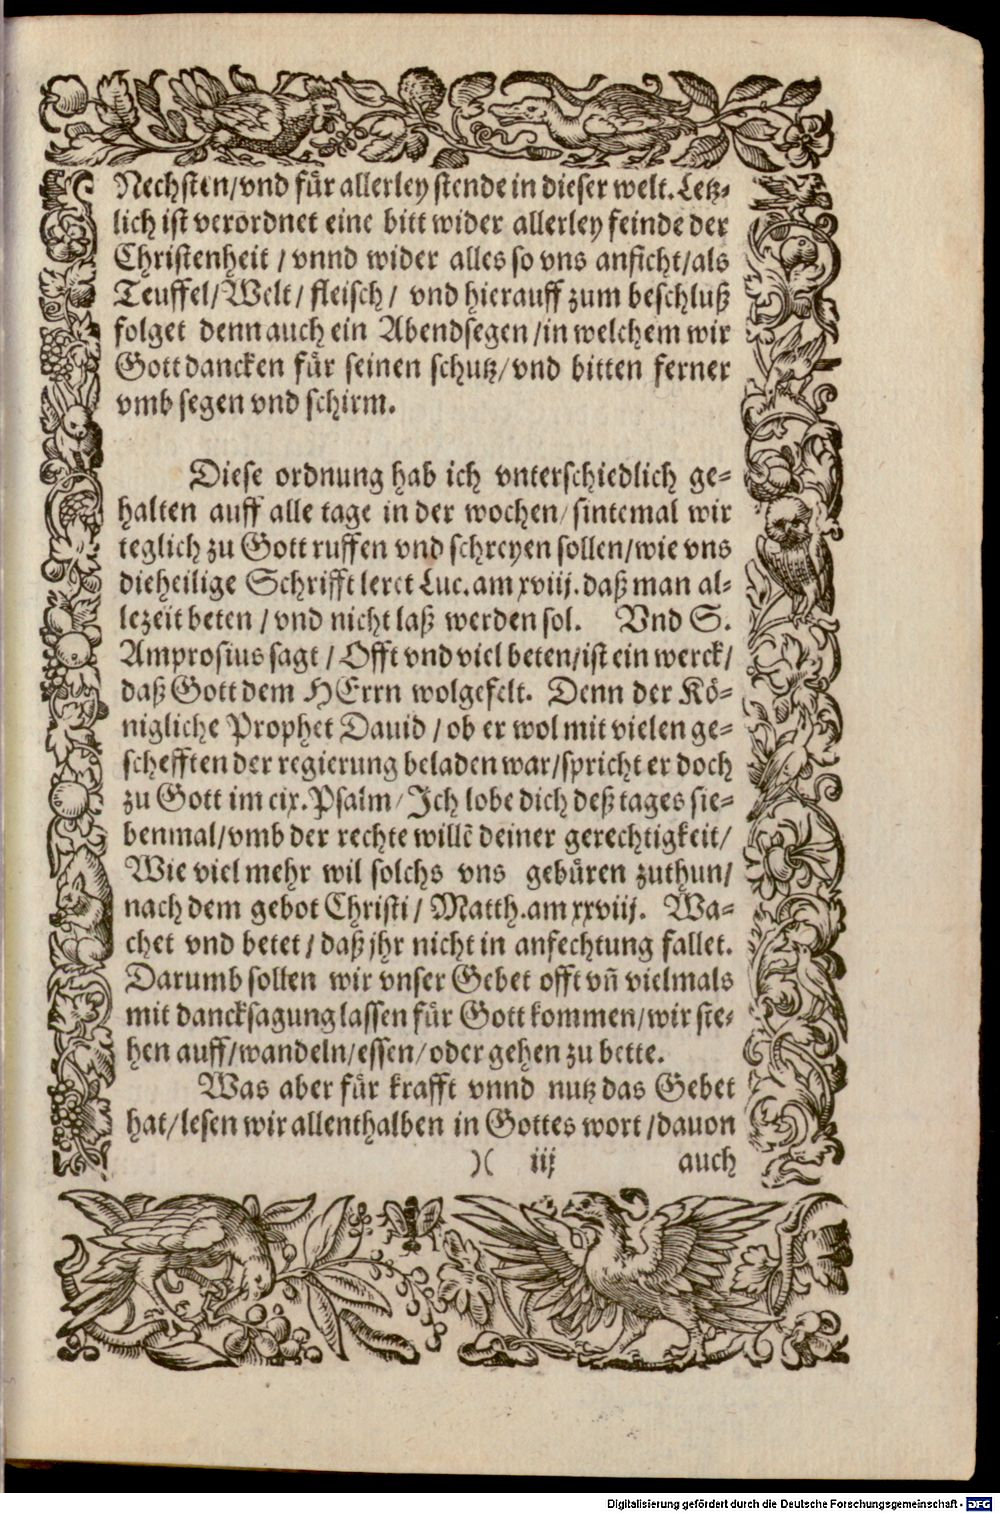 Nechsten/vnd für allerley stende in dieser welt. Letz-
lich ist verordnet eine bitt wider allerley feinde der
Christenheit / vnnd wider alles so vns anficht/als
Teuffel/Welt/ fleisch/ vnd hierauff zum beschluß
folget denn auch ein Abendsegen /in welchem wir
Gott dancken für seinen schutz/vnd bitten ferner
vmb segen vnd schirm.
Diese ordnung hab ich vnterschiedlich ge-
halten auff alle tage in der wochen/sintemal wir
teglich zu Gott ruffen vnd schreyen sollen/wie vns
die heilige Schrifft leret Luc. am xviij. daß man al-
lezeit beten / vnd nicht laß werden sol. Vnd S.
Amprosius sagt / Offt vnd viel beten/ist ein werck/
daß Gott dem HErrn wolgefelt. Denn der Kö-
nigliche Prophet Dauid / ob er wol mit vielen ge-
schefften der regierung beladen war/spricht er doch
zu Gott im cix. Psalm/ Ich lobe dich deß tages sie-
benmal/vmb der rechte willē deiner gerechtigkeit/
Wie viel mehr wil solchs vns gebüren zuthun/
nach dem gebot Christi / Matth. am xxviij. Wa-
chet vnd betet / daß jhr nicht in anfechtung fallet.
Darumb sollen wir vnser Gebet offt vn̄ vielmals
mit dancksagung lassen für Gott kommen/wir ste-
hen auff/wandeln/essen/oder gehen zu bette.
Was aber für krafft vnnd nutz das Gebet
hat/lesen wir allenthalben in Gottes wort /dauon
)( iij auch
Digitalisierung gefördert durch die Deutsche Forschungsgemeinschaft - DFG